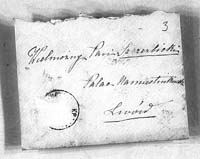 3
Wielmożny Pan Szczerbicki
Pałac Namiestnikowski
Lwów